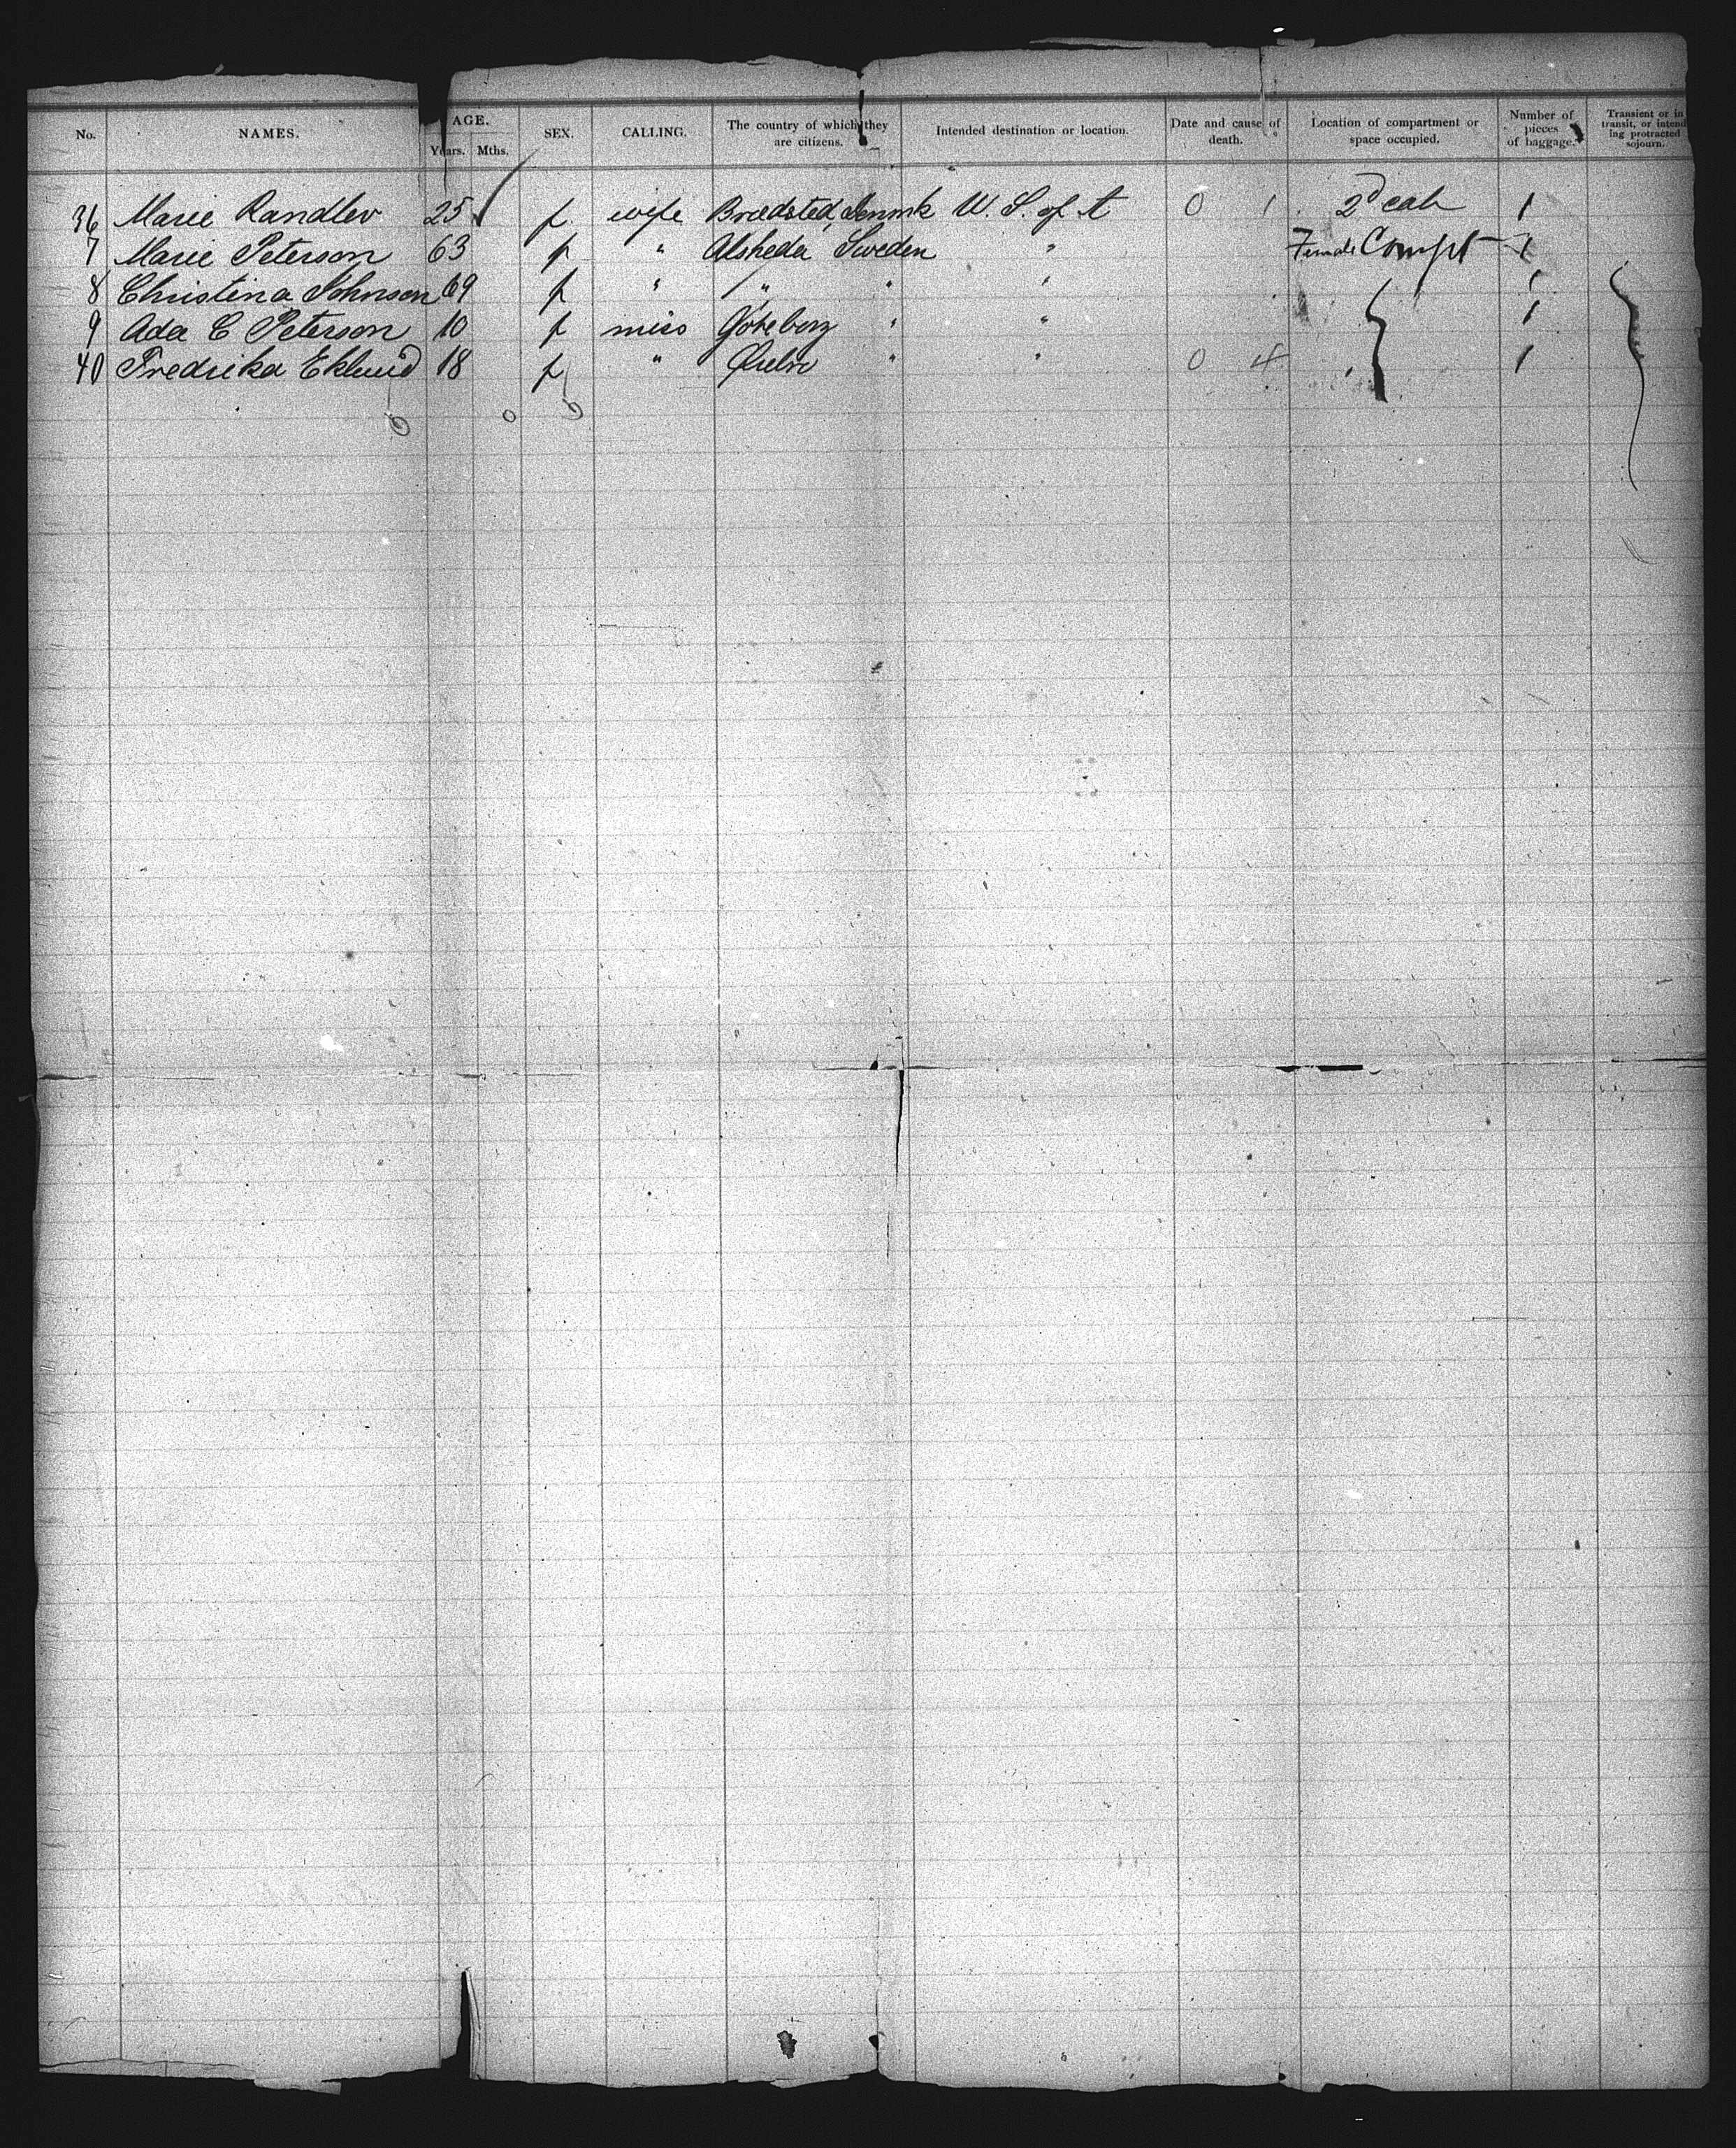 No. NAMES. AGE. Years. Mths. SEX. CALLING. The country of which they are citizens. Intended destination or location. Date and cause of death. Location of compartment or space occupied. Number of pieces of baggage. Transient or in transit, or intending protracted sojourn.
36 Marie Randlev 25 f wife Brædsted, Denmk U. S. of A 0 1 2d cab 1
7 Marie Peterson 63 f " Alsheda Sweden " Female Compt 1
8 Christina Johnson 69 f " " " " 1
9 Ada C Peterson 10 f miss Göteborg " " 1
40 Fredrika Eklund 18 f " " " 0 4 1